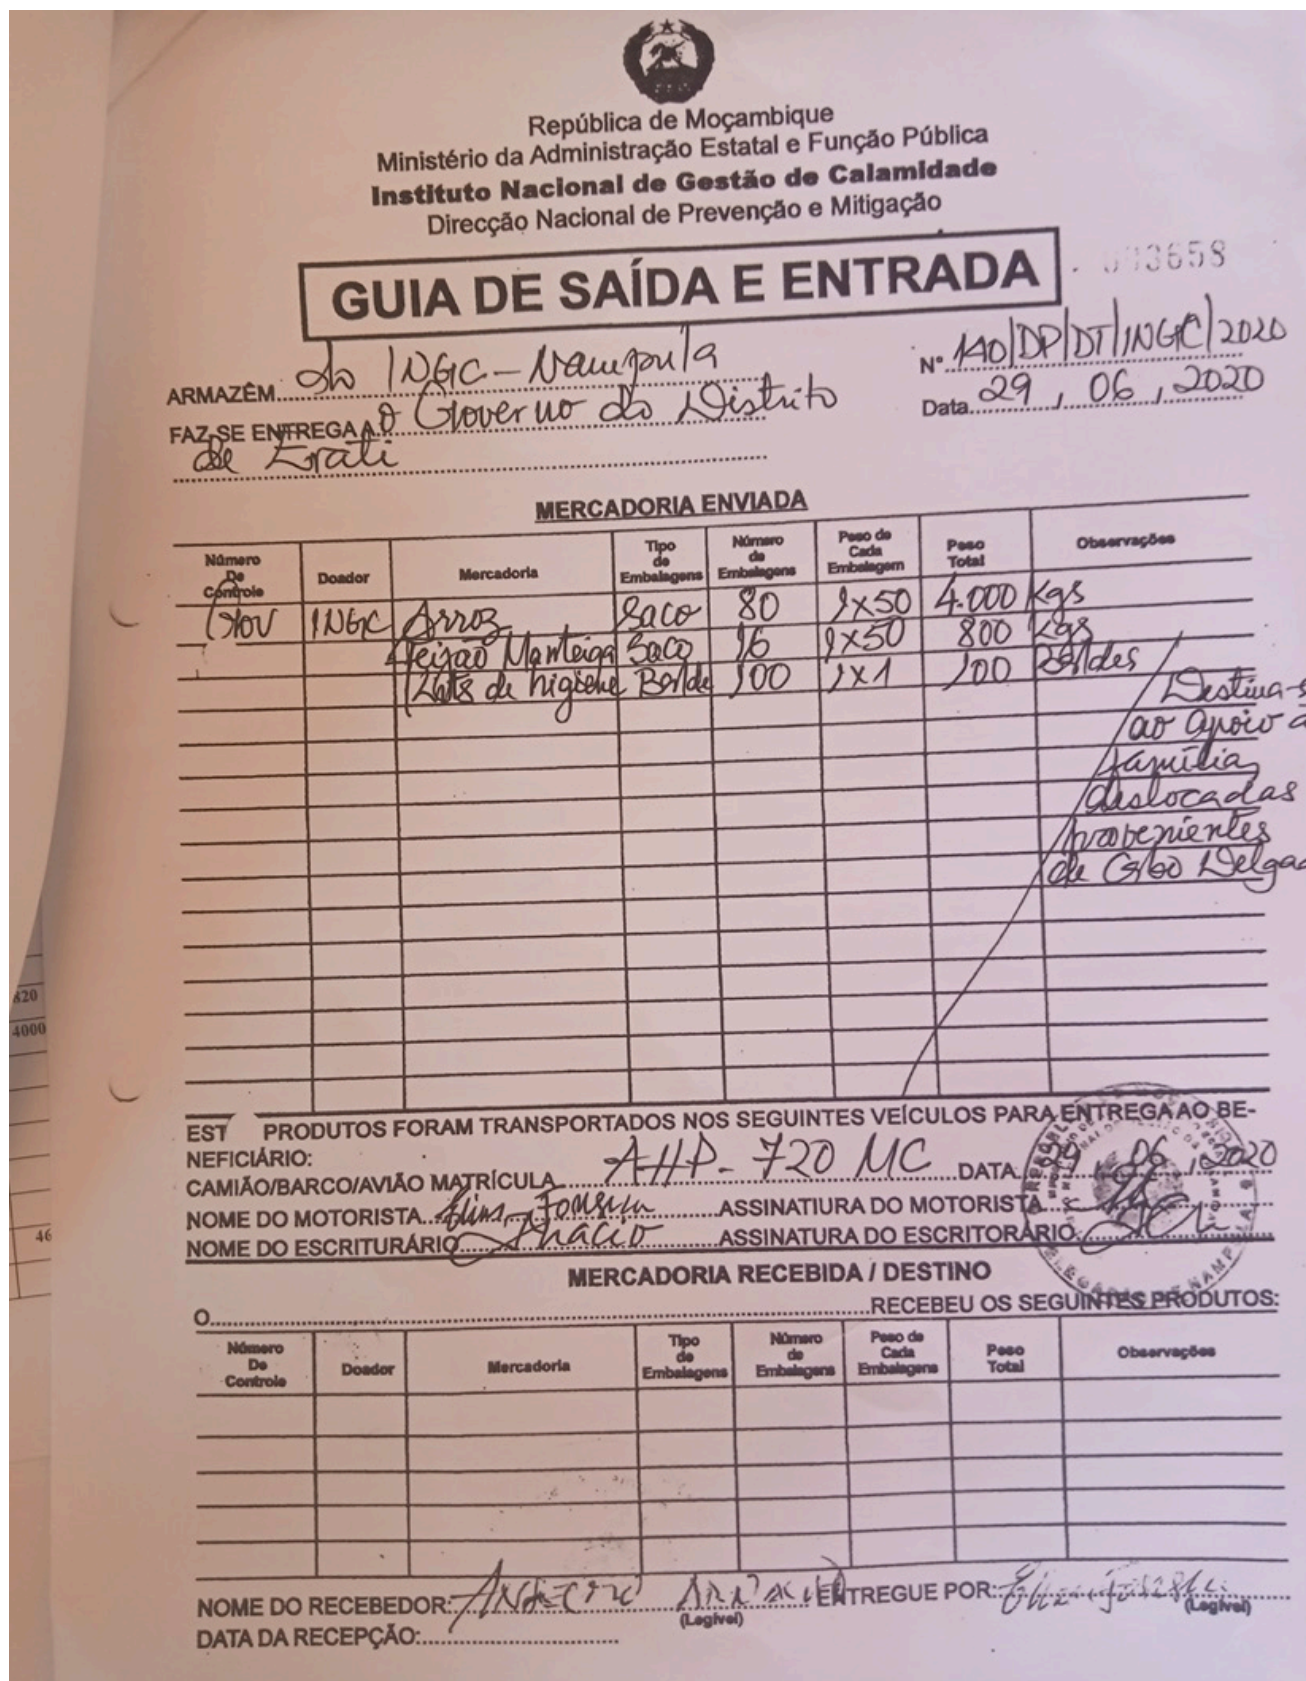 República de Moçambique
Ministério da Administração Estatal e Função Pública
Instituto Nacional de Gestão de Calamidade
Direcção Nacional de Prevenção e Mitigação
GUIA DE SAÍDA E ENTRADA
3658
ARMAZÉM do INGC - Nampula
Nº 140/DP/DT/INGC/2020
FAZ-SE ENTREGA A O Governo do Distrito
Data 29, 06, 2020
de Erati
MERCADORIA ENVIADA
Número De Controle Doador Mercadoria Tipo de Embalagens Número de Embalagens Peso de Cada Embalagem Peso Total Observações
Gov INGC Arroz Saco 80 1x50 4.000 Kgs
Feijão Manteiga Saco 16 1x50 800 Kgs
Kits de higiene Balde 100 1x1 100 Baldes
Destina-s
ao apoio a
famílias
deslocadas
provenientes
de Cabo Delgad
EST PRODUTOS FORAM TRANSPORTADOS NOS SEGUINTES VEÍCULOS PARA ENTREGA AO BE-
NEFICIÁRIO:
CAMIÃO/BARCO/AVIÃO MATRÍCULA AHP-720 MC DATA 29, 06, 2020
NOME DO MOTORISTA Elias Fonseca ASSINATIURA DO MOTORISTA
NOME DO ESCRITURÁRIO ASSINATURA DO ESCRITORÁRIO
MERCADORIA RECEBIDA / DESTINO
O RECEBEU OS SEGUINTES PRODUTOS:
Número De Controle Doador Mercadoria Tipo de Embalagens Número de Embalagens Peso de Cada Embalagens Peso Total Observações
NOME DO RECEBEDOR: ENTREGUE POR:
(Legível) (Legível)
DATA DA RECEPÇÃO:
820
4000
46